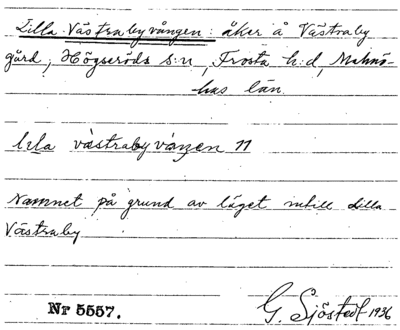 Lilla Västrabyvången: åker å Västraby
gård, Högseröds s:n, Frosta h:d, Malmö-
hus län.
lila västrabyvàŋen 11
Namnet på grund av läget intill Lilla
Västraby
Nr 5557. G. Sjöstedt 1936